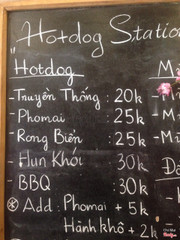 "Hotdog Station
Hotdog
- Truyền Thống : 20k
- Phomai : 25k
- Rong Biển : 25k
- Hun Khói 30k
- BBQ 30k
* Add : Phomai + 5k
Hành khô + 2k